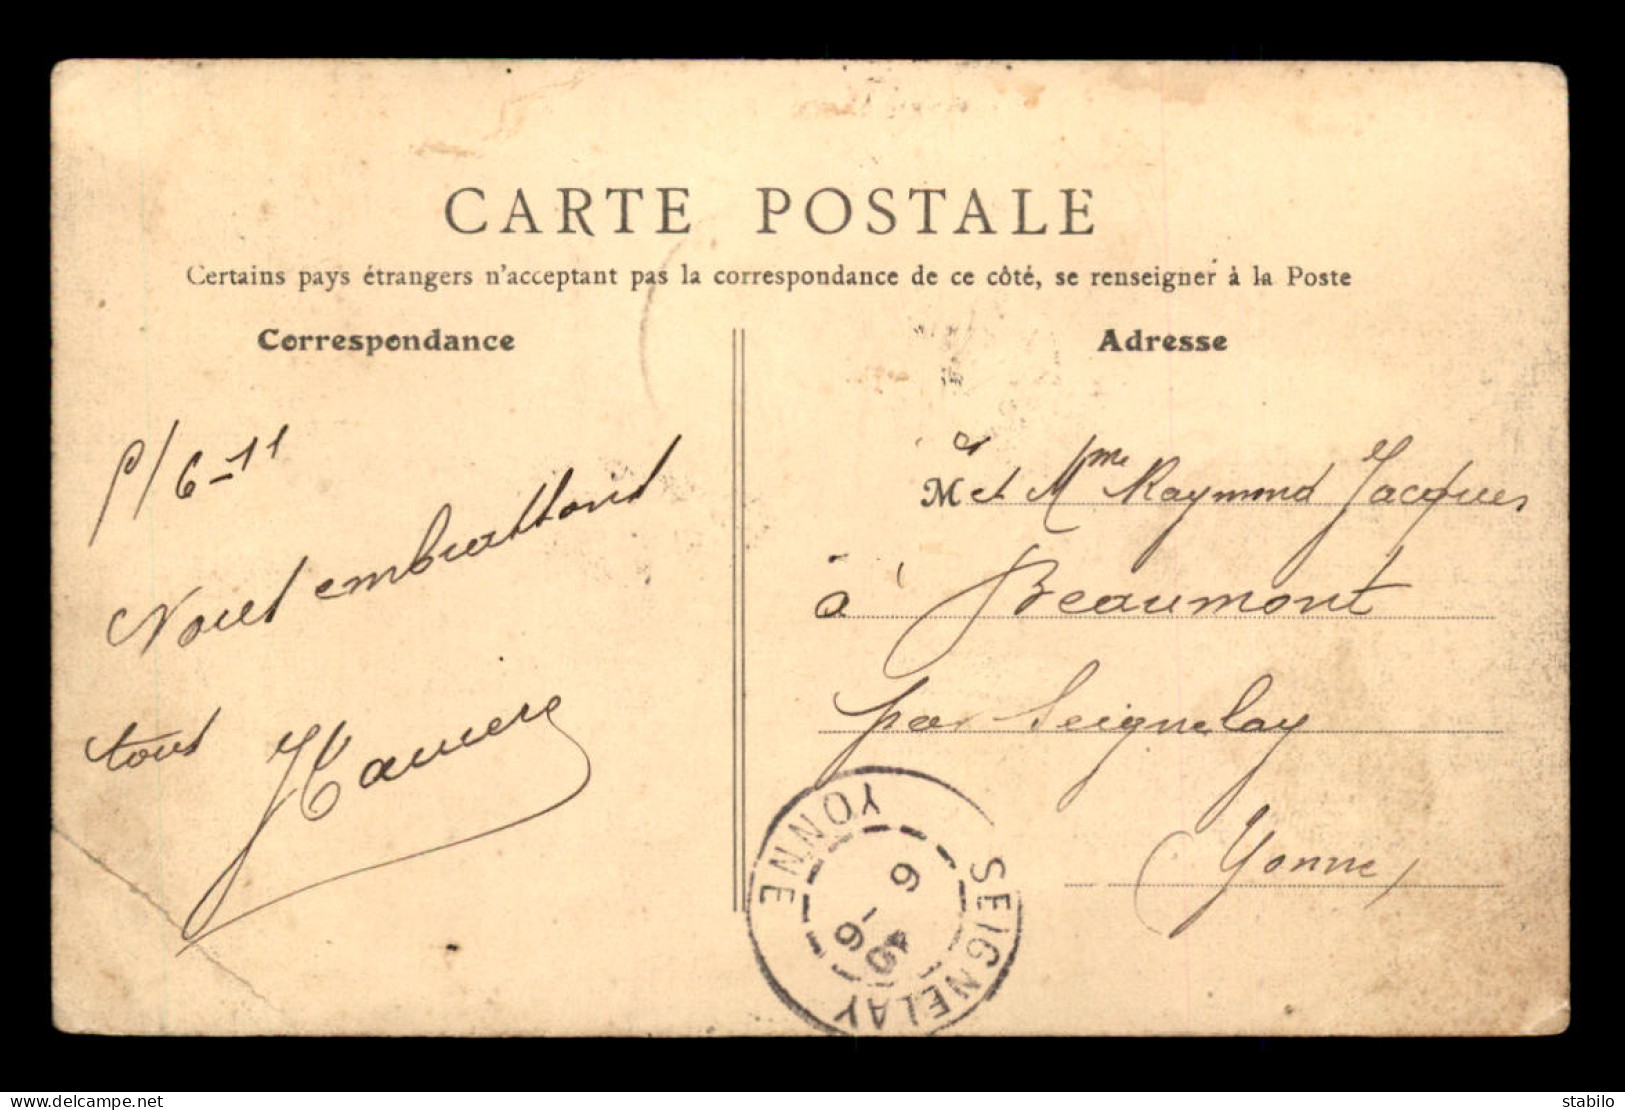 CARTE POSTALE
Certains pays étrangers n'acceptant pas la correspondance de ce côté, se renseigner à la Poste
Correspondance
Adresse
6-11
Nous embrassons
tous
M et Mme Raymond Jacques
à Beaumont
par Seignelay
Yonne
SEIGNELAY
YONNE
6 - 6
delcampe.net
stabilo